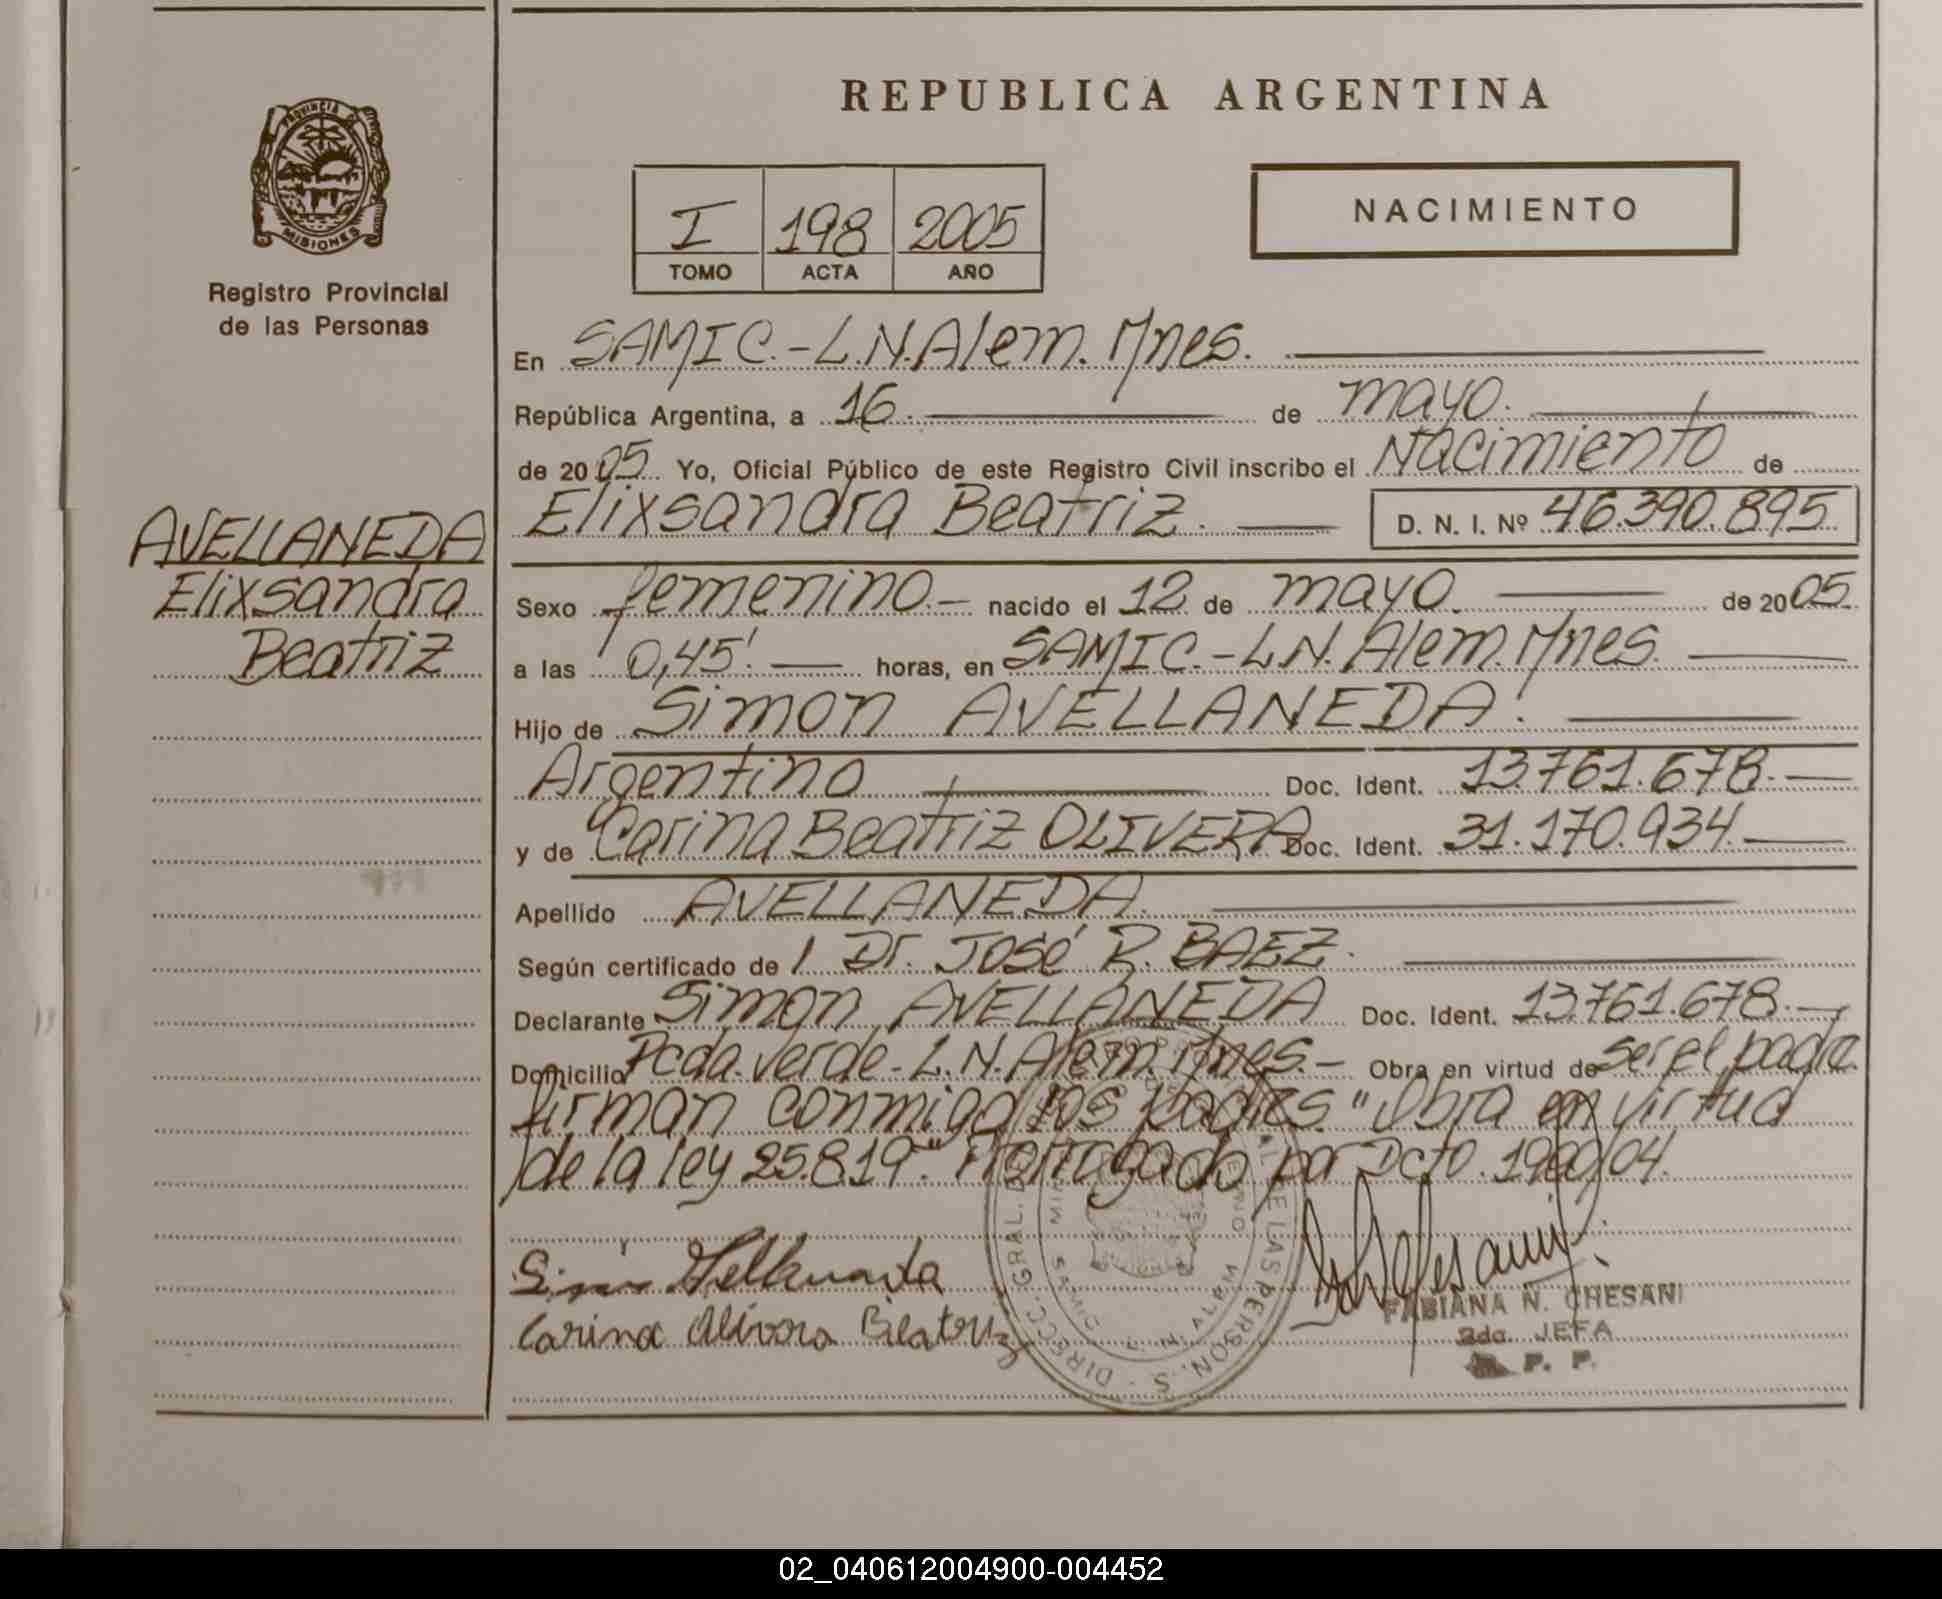 REPUBLICA ARGENTINA
PROVINCIA DE
MISIONES
Registro Provincial
de las Personas
I 198 2005
TOMO ACTA AÑO
NACIMIENTO
En SAMIC.-L.N.Alem. Mnes.
República Argentina, a 16. de mayo.
de 2005 Yo, Oficial Público de este Registro Civil inscribo el Nacimiento de
Elixsandra Beatriz. D. N. I. Nº 46.390.895
AVELLANEDA
Elixsandra
Beatriz
Sexo femenino.- nacido el 12 de mayo. de 2005.
a las 0,45'. horas, en SAMIC.-L.N. Alem. Mnes.
Hijo de Simon AVELLANEDA.
Argentino Doc. Ident. 13.761.678.
y de Carina Beatriz OLIVERA Doc. Ident. 31.170.934.
Apellido AVELLANEDA.
Según certificado de 1 Dr. José R. BAEZ.
Declarante Simon AVELLANEDA Doc. Ident. 13.761.678.-
Domicilio Pcda. Verde-L.N. Alem. Mnes.- Obra en virtud de ser el padre.
firman conmigo los padres. "Obra en virtud
de la ley 25.819." Prorrogado por Dcto. 1900/04.
Carina Olivera Beatriz
FABIANA N. CHESANI
2da. JEFA
P. P.
02_040612004900-004452